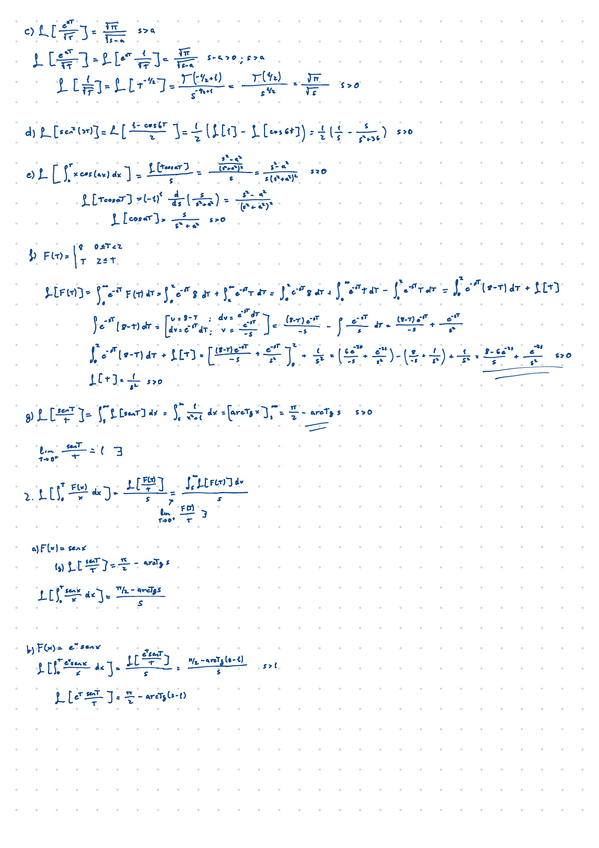 c) L[e^{aT}/√T] = √π/√(s-a)   s>a
L[e^{aT}/√T] = L[e^{aT} 1/√T] = √π/√(s-a)   s-a>0 ; s>a
L[1/√T] = L[T^{-1/2}] = Γ(-1/2+1)/s^{-1/2+1} = Γ(1/2)/s^{1/2} = √π/√s   s>0
d) L[sen²(3T)] = L[(1-cos6T)/2] = 1/2 (L[1] - L[cos6t]) = 1/2 (1/s - s/(s²+36))   s>0
e) L[∫₀^T x cos(ax) dx] = L[Tcosat]/s = ((s²-a²)/(s²+a²)²)/s = (s²-a²)/(s(s²+a²)²)   s>0
L[TcosaT] = (-1)¹ d/ds (s/(s²+a²)) = (s²-a²)/(s²+a²)²
L[cosaT] = s/(s²+a²)   s>0
f) F(T) = | 8   0≤T<2
| T   2≤T
L[F(T)] = ∫₀^∞ e^{-sT} F(T) dT = ∫₀² e^{-sT} 8 dT + ∫₂^∞ e^{-sT} T dT = ∫₀² e^{-sT} 8 dT + ∫₀^∞ e^{-sT} T dT - ∫₀² e^{-sT} T dT = ∫₀² e^{-sT} (8-T) dT + L[T]
∫ e^{-sT} (8-T) dT = [u = 8-T ; du = e^{-sT} dT
dv = e^{-sT} dT ; v = e^{-sT}/-s] = (8-T)e^{-sT}/-s - ∫ e^{-sT}/s dT = (8-T)e^{-sT}/-s + e^{-sT}/s²
∫₀² e^{-sT} (8-T) dT + L[T] = [(8-T)e^{-sT}/-s + e^{-sT}/s²]₀² + 1/s² = (6e^{-2s}/-s + e^{-2s}/s²) - (8/-s + 1/s²) + 1/s² = (8-6e^{-2s})/s + e^{-2s}/s²   s>0
L[T] = 1/s²   s>0
g) L[senT/T] = ∫ₛ^∞ L[senT] dx = ∫ₛ^∞ 1/(x²+1) dx = [arcTg x]ₛ^∞ = π/2 - arcTg s   s>0
lim_{T→0⁺} senT/T = 1   ∃
2. L[∫₀^T F(x)/x dx] = L[F(T)/T]/s = ∫ₛ^∞ L[F(T)] du / s
lim_{T→0⁺} F(T)/T ∃
a) F(x) = senx
(g) L[senT/T] = π/2 - arcTg s
L[∫₀^T senx/x dx] = (π/2 - arcTg s)/s
b) F(x) = e^x senx
L[∫₀^T e^x senx/x dx] = L[e^T senT/T]/s = (π/2 - arcTg(s-1))/s   s>1
L[e^T senT/T] = π/2 - arcTg(s-1)